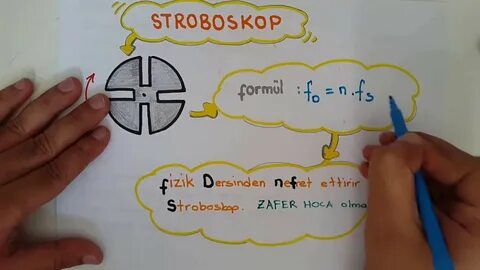 STROBOSKOP
formül : fD = n.fs
fizik Dersinden nefret ettirir
Stroboskop. ZAFER HOCA olma